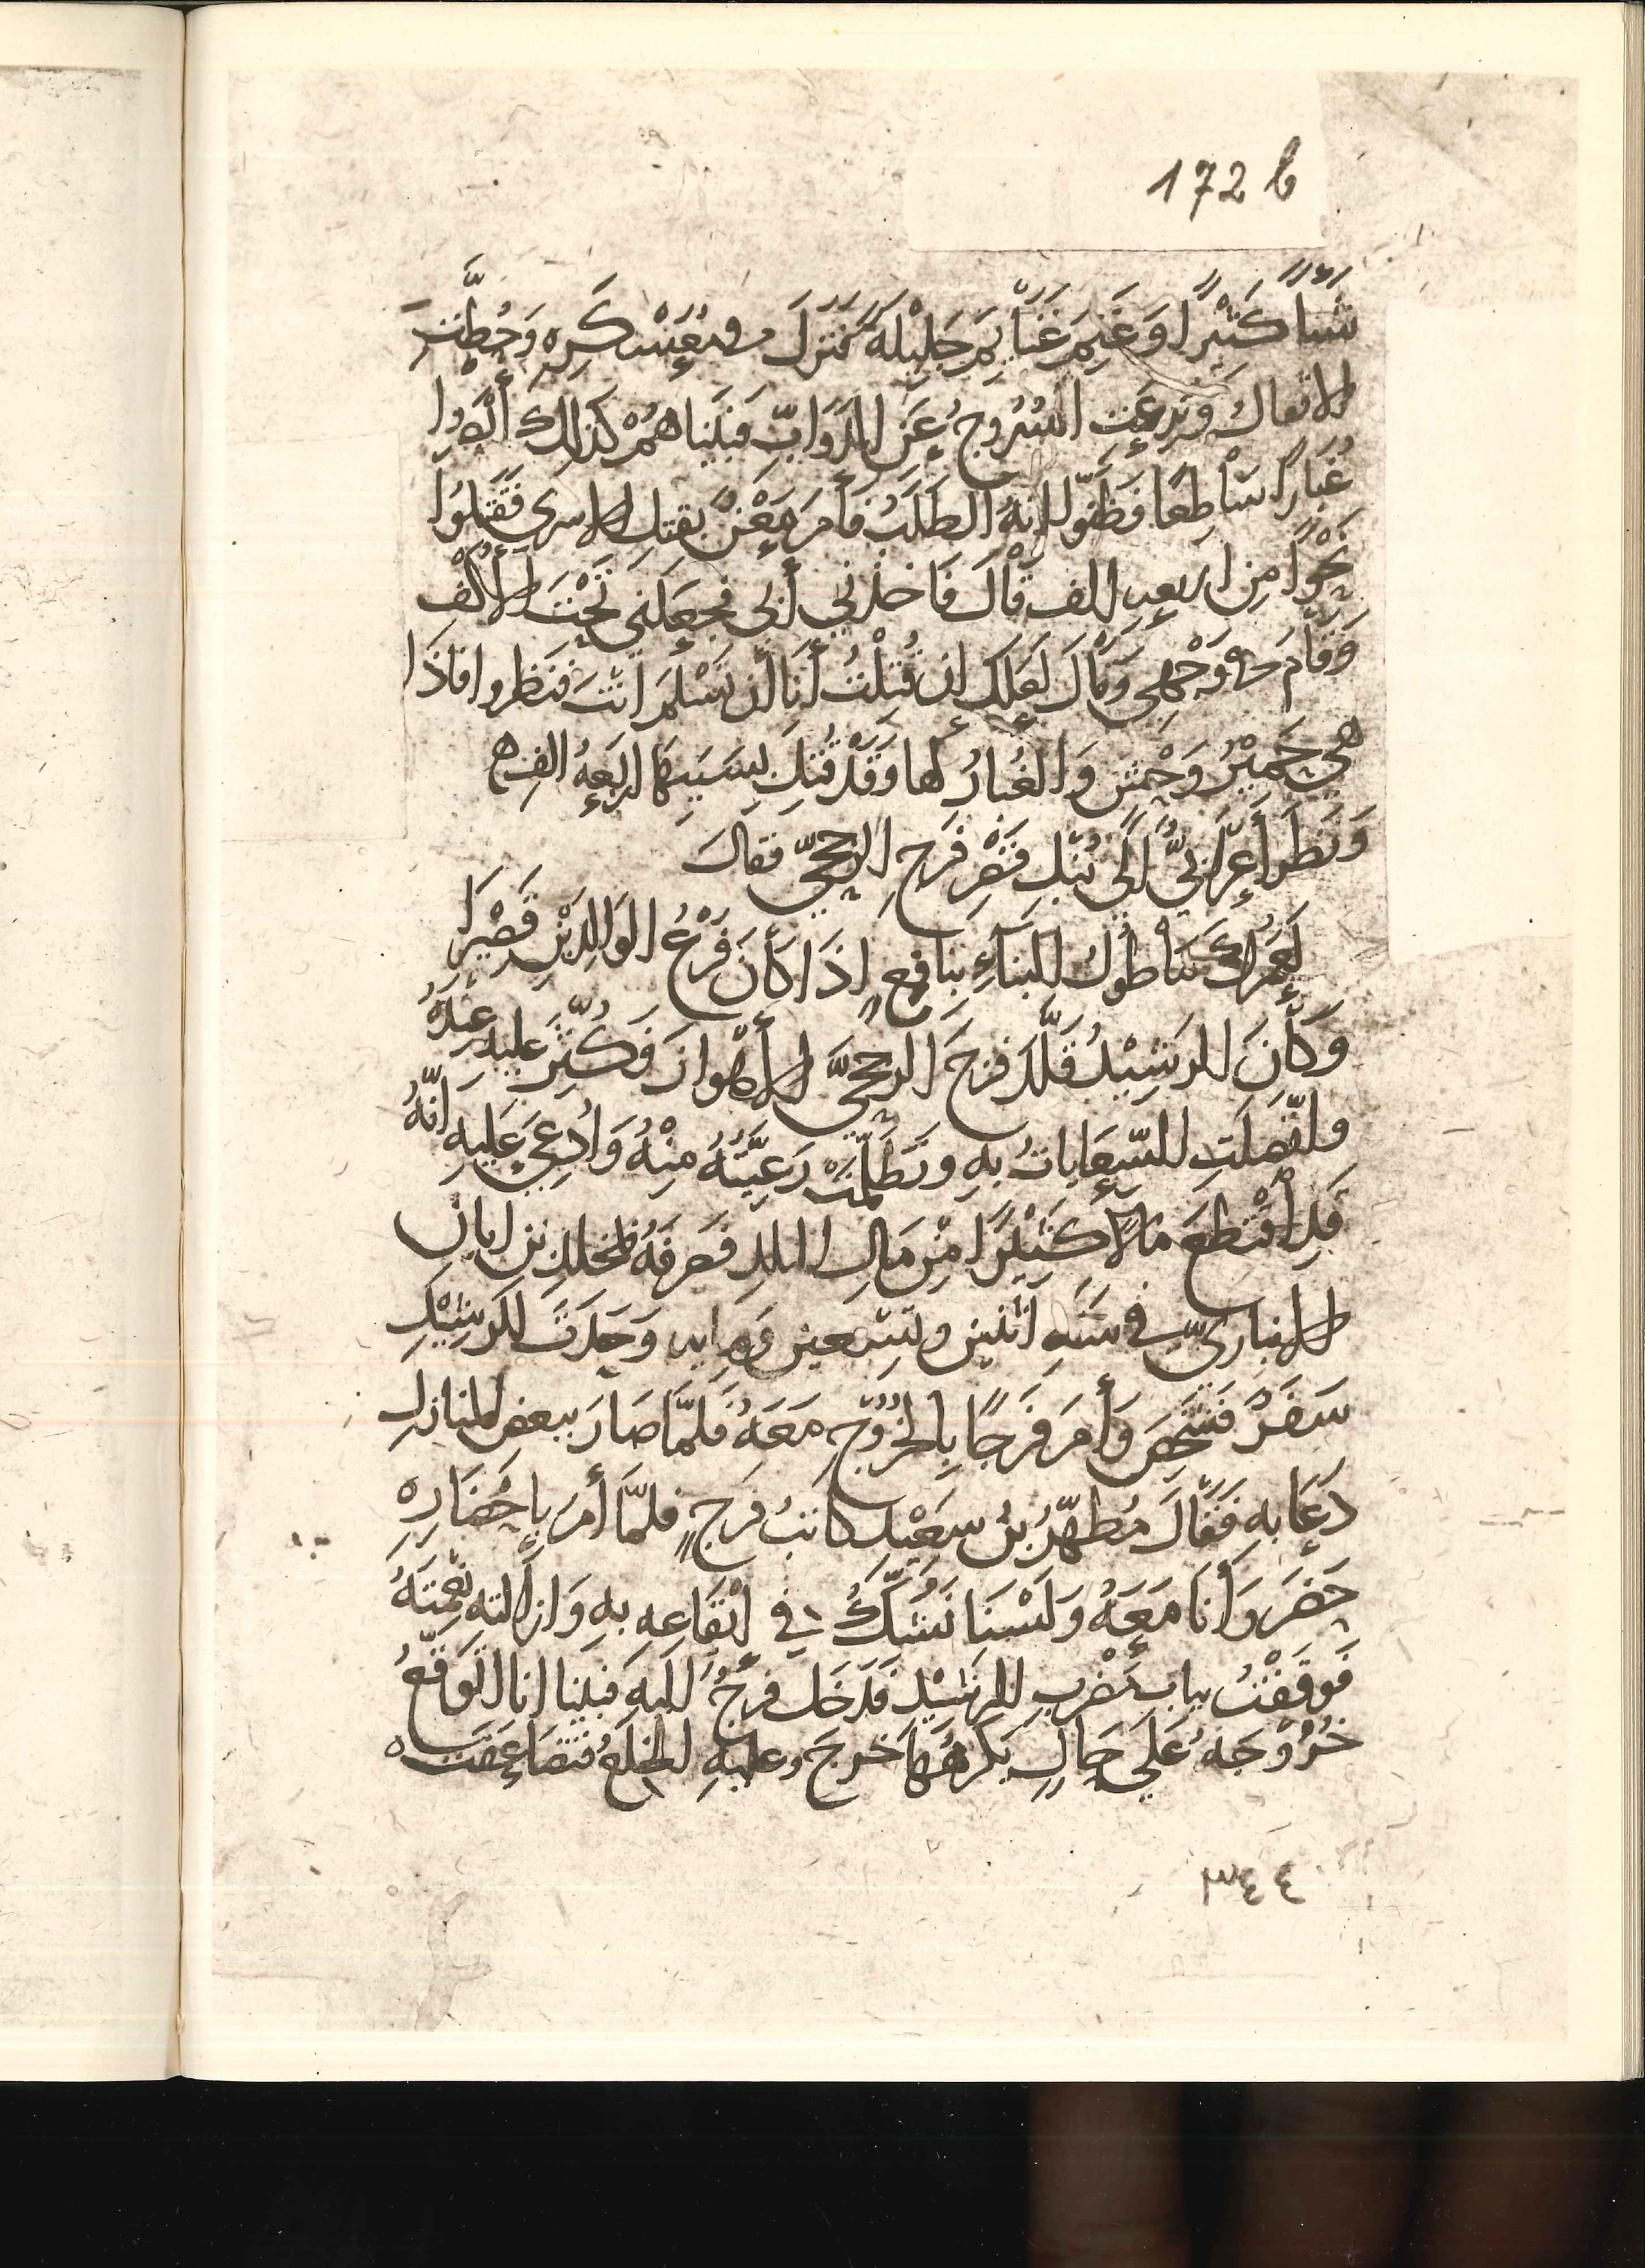 172 b
شَيْئًا كَثِيْرًا وَغَنِمَ غَنَايِمَ جَلِيْلَةً فَنَزَلَ في مُعَسْكَرِهِ وَحُطَّتِ
الاثقالُ وَنزِعَتِ السُرُوجُ عَنِ الدَوَابِّ فَبَيْنَاهُمْ كَذَلِكَ أَبْصَرُوا
غُبَارًا سَاطِعًا فَظَنّوا انهُ الطَلَبُ فأمَرَ مَعْنٌ بقتلِ الاسرى فَقَتَلُوا
نَحْوًا مِن اربعه الف قَالَ فَاخذنِي أَبي فجعَلَني تَحْتَ الأُكُفِ
وَقَامَ في وَجْهِي وَقَالَ لَعَلَكَ ان قُتِلْتُ أَنا أن تَسْلمَ انْتَ فنَظروا فاذَا
هي حَمِيْرُ وَحْشٍ وَالغُبارُ لها وَقَدْ قُتِلَ بِسَبَبِهَا اربَعةُ الف ه
وَنَظَر أَعرَابيٌّ الَى نُبْلِ قَصْرِ فَرَجِ الرخجيّ فقالَ
لَعَمْرُكَ مَا طُولُ البِنَآءِ بِنَافِعٍ اذَا كَانَ فَرْعُ الوَالِدَيْنِ قَصِيْرَا
وَكَانَ الرَشِيْدُ قَلَّدَ فرَجَ الرخجيَّ الأَهْوازَ فَكُثِّرَ عليه عنْدَهُ
واتّصَلَتِ السّعَايَاتُ بهِ وتَظَلّمَتْ رَعِيَّتُهُ مِنْهُ وَادُعِيَ عَليهِ انّهُ
قَدِ أقْتَطَعَ مَالًا كَثيْرًا مِنْ مَالِ البلد فَصَرفَهُ بمخلد بن ابانِ
الانباريّ في سَنَهِ اثنين وتِسْعين وَمِايه وَحَدَثَ للرَشِيْدِ
سَفَرٌ فَشَخَصَ وَأمَرَ فَرَجًا بِالخُرُوْجِ مَعَهُ فَلمَّا صَارَ ببعضِ المنازِلِ
دَعَا بهِ فَقَالَ مُطهّرُ بنُ سعيْد كاتبُ فرَجٍ فلمَّا أمَرَ باحْضَارِه
حَضَرَ وَأنَا مَعَهُ وَلَسْنَا نَشُكُّ في ايْقَاعِهِ بهِ وَازالته نِعْمتَهُ
فوَقَفْتُ ببابِ مَضْرِبِ الرَشيْد فدَخَل فرجُ اليهِ فَبَيْنا انا اتَوَقّعُ
خُرُوْجَهُ عَلَى حَالٍ يَكْرَهُهَا خَرجَ وعليهِ الخلَعُ فتَضَاعَفَت ه
٣٤٤